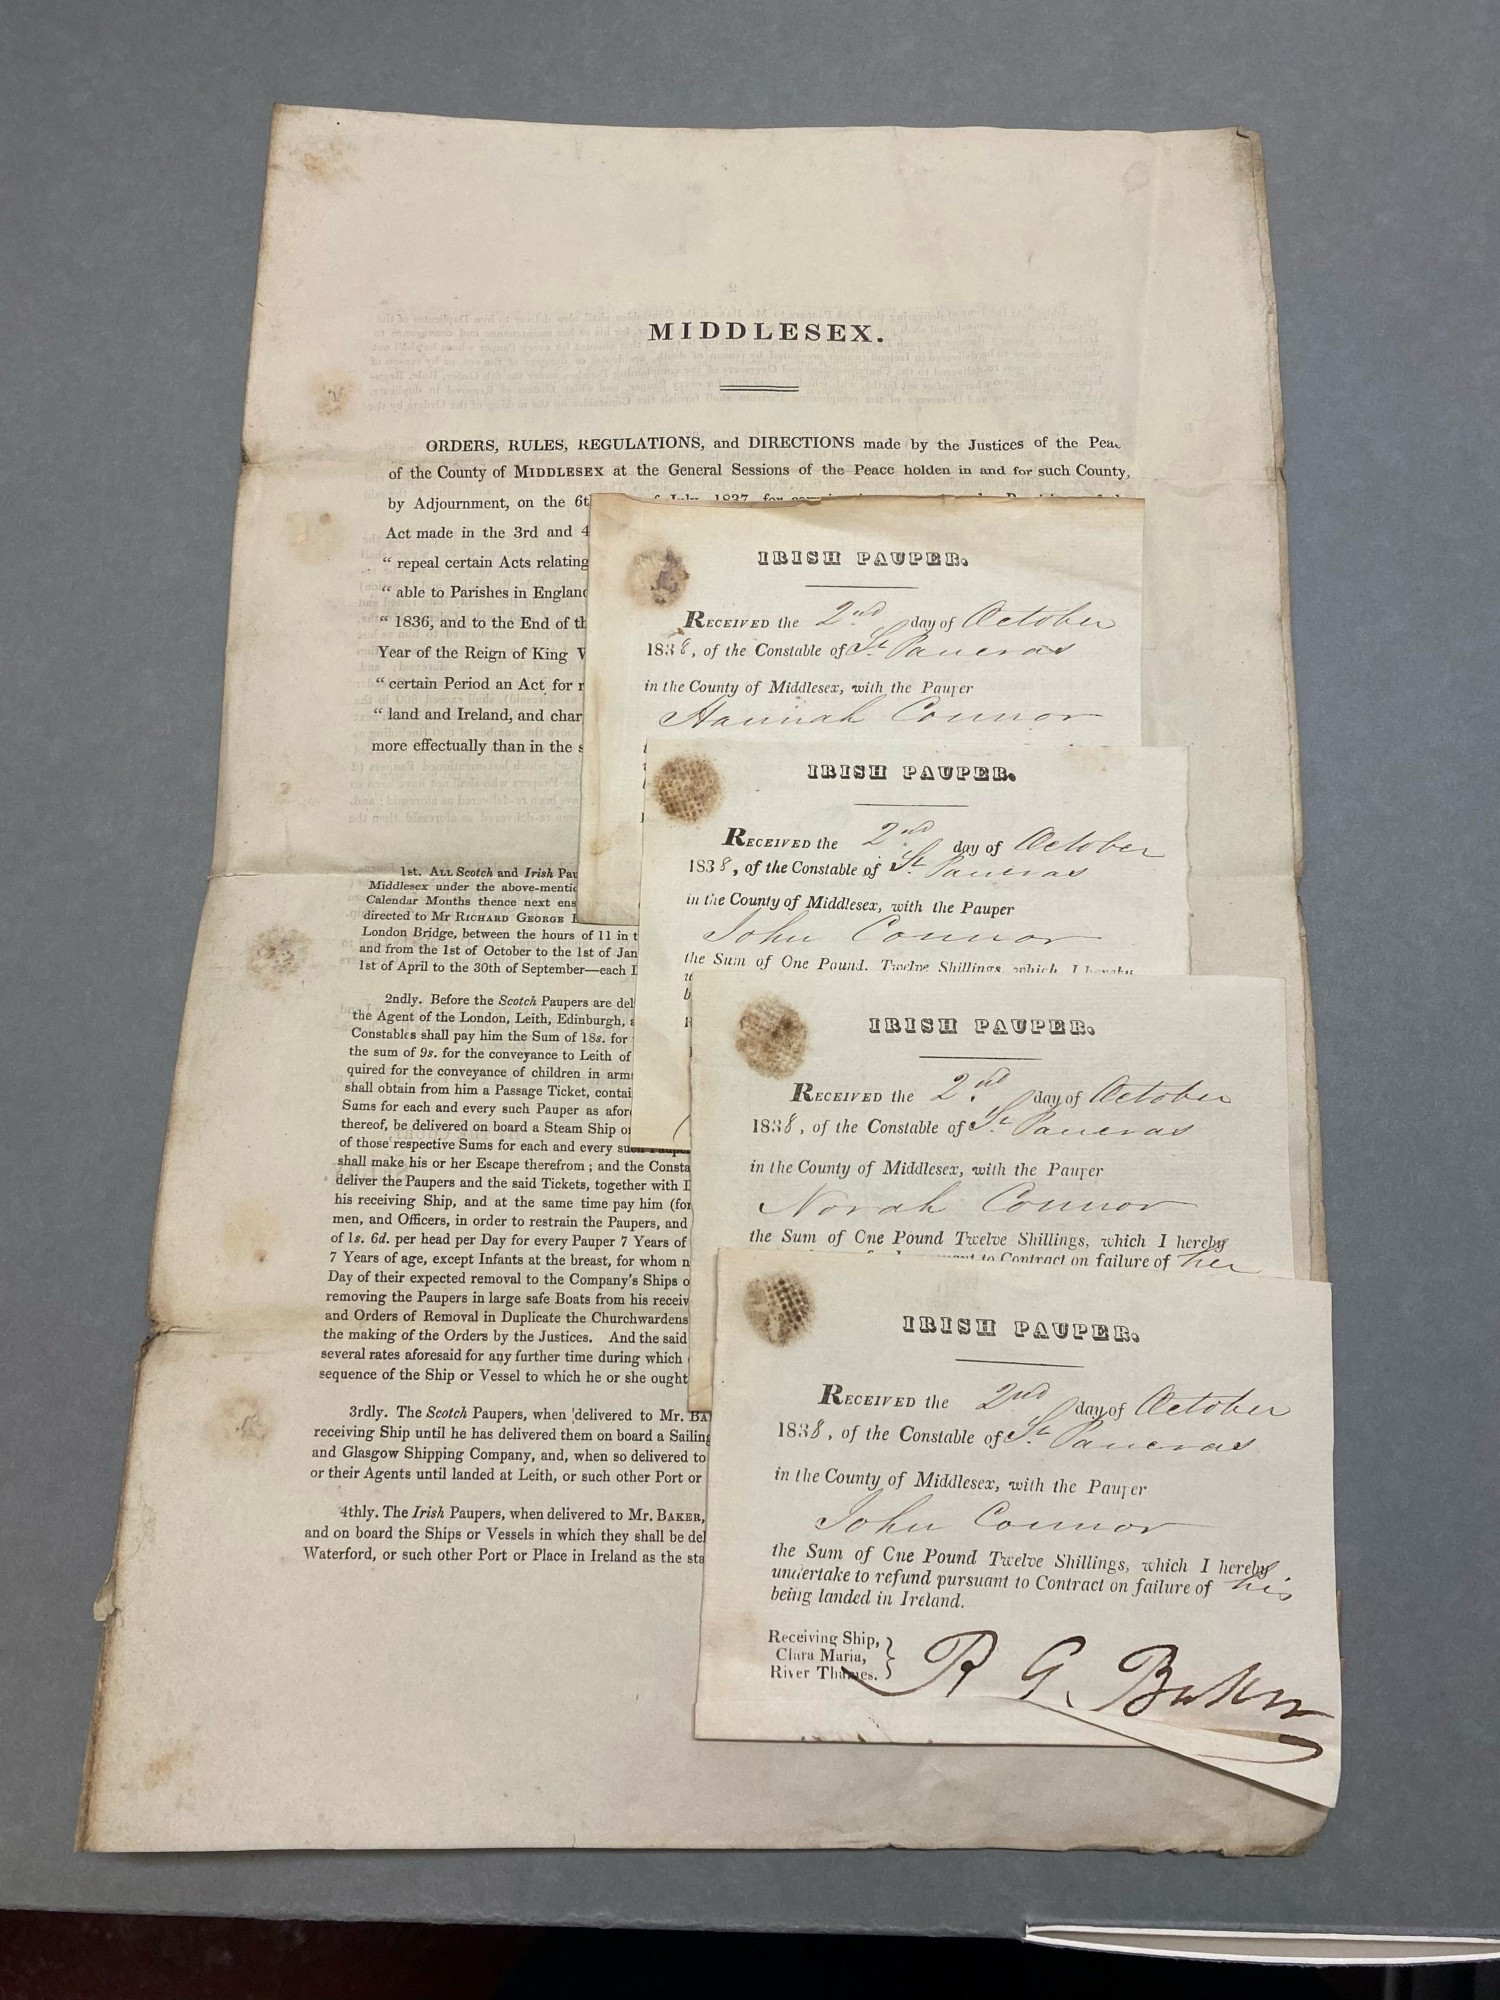 MIDDLESEX.
ORDERS, RULES, REGULATIONS, and DIRECTIONS made by the Justices of the Peac
of the County of MIDDLESEX at the General Sessions of the Peace holden in and for such County,
by Adjournment, on the 6t of July, 1837, for
Act made in the 3rd and 4
“ repeal certain Acts relating
“ able to Parishes in England
“ 1836, and to the End of th
Year of the Reign of King
“ certain Period an Act for r
“ land and Ireland, and char
more effectually than in the s
1st. ALL Scotch and Irish Pau
Middlesex under the above-mentio
Calendar Months thence next ens
directed to Mr RICHARD GEORGE
London Bridge, between the hours of 11 in t
and from the 1st of October to the 1st of Jan
1st of April to the 30th of September—each
2ndly. Before the Scotch Paupers are del
the Agent of the London, Leith, Edinburgh, a
Constables shall pay him the Sum of 18s. for
the sum of 9s. for the conveyance to Leith of
quired for the conveyance of children in arms
shall obtain from him a Passage Ticket, contai
Sums for each and every such Pauper as afor
thereof, be delivered on board a Steam Ship or
of those respective Sums for each and every such Pauper
shall make his or her Escape therefrom ; and the Consta
deliver the Paupers and the said Tickets, together with
his receiving Ship, and at the same time pay him (for
men, and Officers, in order to restrain the Paupers, and
of 1s. 6d. per head per Day for every Pauper 7 Years of
7 Years of age, except Infants at the breast, for whom n
Day of their expected removal to the Company's Ships o
removing the Paupers in large safe Boats from his receiv
and Orders of Removal in Duplicate the Churchwardens
the making of the Orders by the Justices. And the said
several rates aforesaid for any further time during which
sequence of the Ship or Vessel to which he or she ought
3rdly. The Scotch Paupers, when delivered to Mr. BA
receiving Ship until he has delivered them on board a Sailing
and Glasgow Shipping Company, and, when so delivered to
or their Agents until landed at Leith, or such other Port or
4thly. The Irish Paupers, when delivered to Mr. BAKER,
and on board the Ships or Vessels in which they shall be del
Waterford, or such other Port or Place in Ireland as the sta
IRISH PAUPER.
RECEIVED the 2nd day of October
1838, of the Constable of St. Pancras
in the County of Middlesex, with the Pauper
Hannah Connor
IRISH PAUPER.
RECEIVED the 2nd day of October
1838, of the Constable of St. Pancras
in the County of Middlesex, with the Pauper
John Connor
the Sum of One Pound, Twelve Shillings, which I hereby
IRISH PAUPER.
RECEIVED the 2nd day of October
1838, of the Constable of St. Pancras
in the County of Middlesex, with the Pauper
Norah Connor
the Sum of One Pound Twelve Shillings, which I hereby
to Contract on failure of her
IRISH PAUPER.
RECEIVED the 2nd day of October
1838, of the Constable of St. Pancras
in the County of Middlesex, with the Pauper
John Connor
the Sum of One Pound Twelve Shillings, which I hereby
undertake to refund pursuant to Contract on failure of his
being landed in Ireland.
Receiving Ship,
Clara Maria,
River Thames.
R G Baker